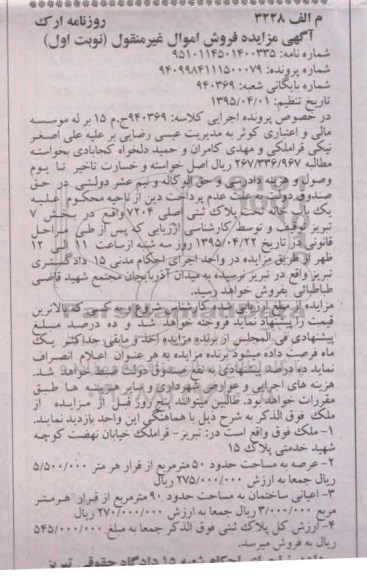 م الف ۳۲۲۸ روزنامه ارک
آگهی مزایده فروش اموال غیرمنقول (نوبت اول)
شماره نامه: ۹۵۱۰۱۱۴۵۰۱۴۰۰۳۳۵
شماره پرونده: ۹۴۰۹۹۸۴۱۱۱۵۰۰۰۷۹
شماره بایگانی شعبه: ۹۴۰۳۶۹
تاریخ تنظیم: ۱۳۹۵/۰۴/۰۱
در خصوص پرونده اجرایی کلاسه: ۹۴۰۳۶۹ج.م ۱۵ بر له موسسه
مالی و اعتباری کوثر به مدیریت عیسی رضایی بر علیه علی اصغر
نیکی قراملکی و مهدی کامران و حمید دلخواه کجابادی بخواسته
مطالبه ۲۶۷/۳۳۶/۹۶۷ ریال اصل خواسته و خسارت تاخیر تا یوم
وصول و هزینه دادرسی و حق الوکاله و نیم عشر دولتی در حق
صندوق دولت بابت عدم پرداخت دین از ناحیه محکوم علیه
یک باب خانه تحت پلاک ثبتی اصلی ۷۲۰۴ واقع در بخش ۷
تبریز توقیف و توسط کارشناسی ارزیابی که پس از طی مراحل
قانونی در تاریخ ۱۳۹۵/۰۴/۲۲ روز سه شنبه از ساعت ۱۱ الی ۱۲
ظهر از طریق مزایده در واحد اجرای احکام مدنی ۱۵ دادگستری
تبریز واقع در تبریز نرسیده به میدان آذربایجان مجتمع شهید قاضی
طباطبائی بفروش خواهد رسید.
مزایده از مبلغ ارزیابی شده کارشناس شروع و به کسی که بالاترین
قیمت را پیشنهاد نماید فروخته خواهد شد و ده درصد مبلغ
پیشنهادی فی المجلس از برنده مزایده اخذ و مابقی حداکثر یک
ماه فرصت داده میشود برنده مزایده به هر عنوان اعلام انصراف
نماید ده درصد پیشنهادی به نفع صندوق دولت ضبط خواهد شد.
هزینه های اجرایی و عوارض شهرداری و سایر هزینه ها طبق
مقررات خواهد بود. طالبین میتوانند پنج روز قبل از مزایده از
ملک فوق الذکر به شرح ذیل با هماهنگی این واحد بازدید نمایند.
۱- ملک فوق واقع است در: تبریز- قراملک خیابان نهضت کوچه
شهید خدمتی پلاک ۱۵
۲- عرصه به مساحت حدود ۵۰ مترمربع از قرار هر متر ۵/۵۰۰/۰۰۰
ریال جمعا به ارزش ۲۷۵/۰۰۰/۰۰۰ ریال
۳- اعیانی ساختمان به مساحت حدود ۹۰ مترمربع از قرار هر متر
مربع ۳/۰۰۰/۰۰۰ ریال جمعا به ارزش ۲۷۰/۰۰۰/۰۰۰ ریال
۴- ارزش کل پلاک ثبتی فوق الذکر جمعا به مبلغ ۵۴۵/۰۰۰/۰۰۰
ریال به فروش میرسد.